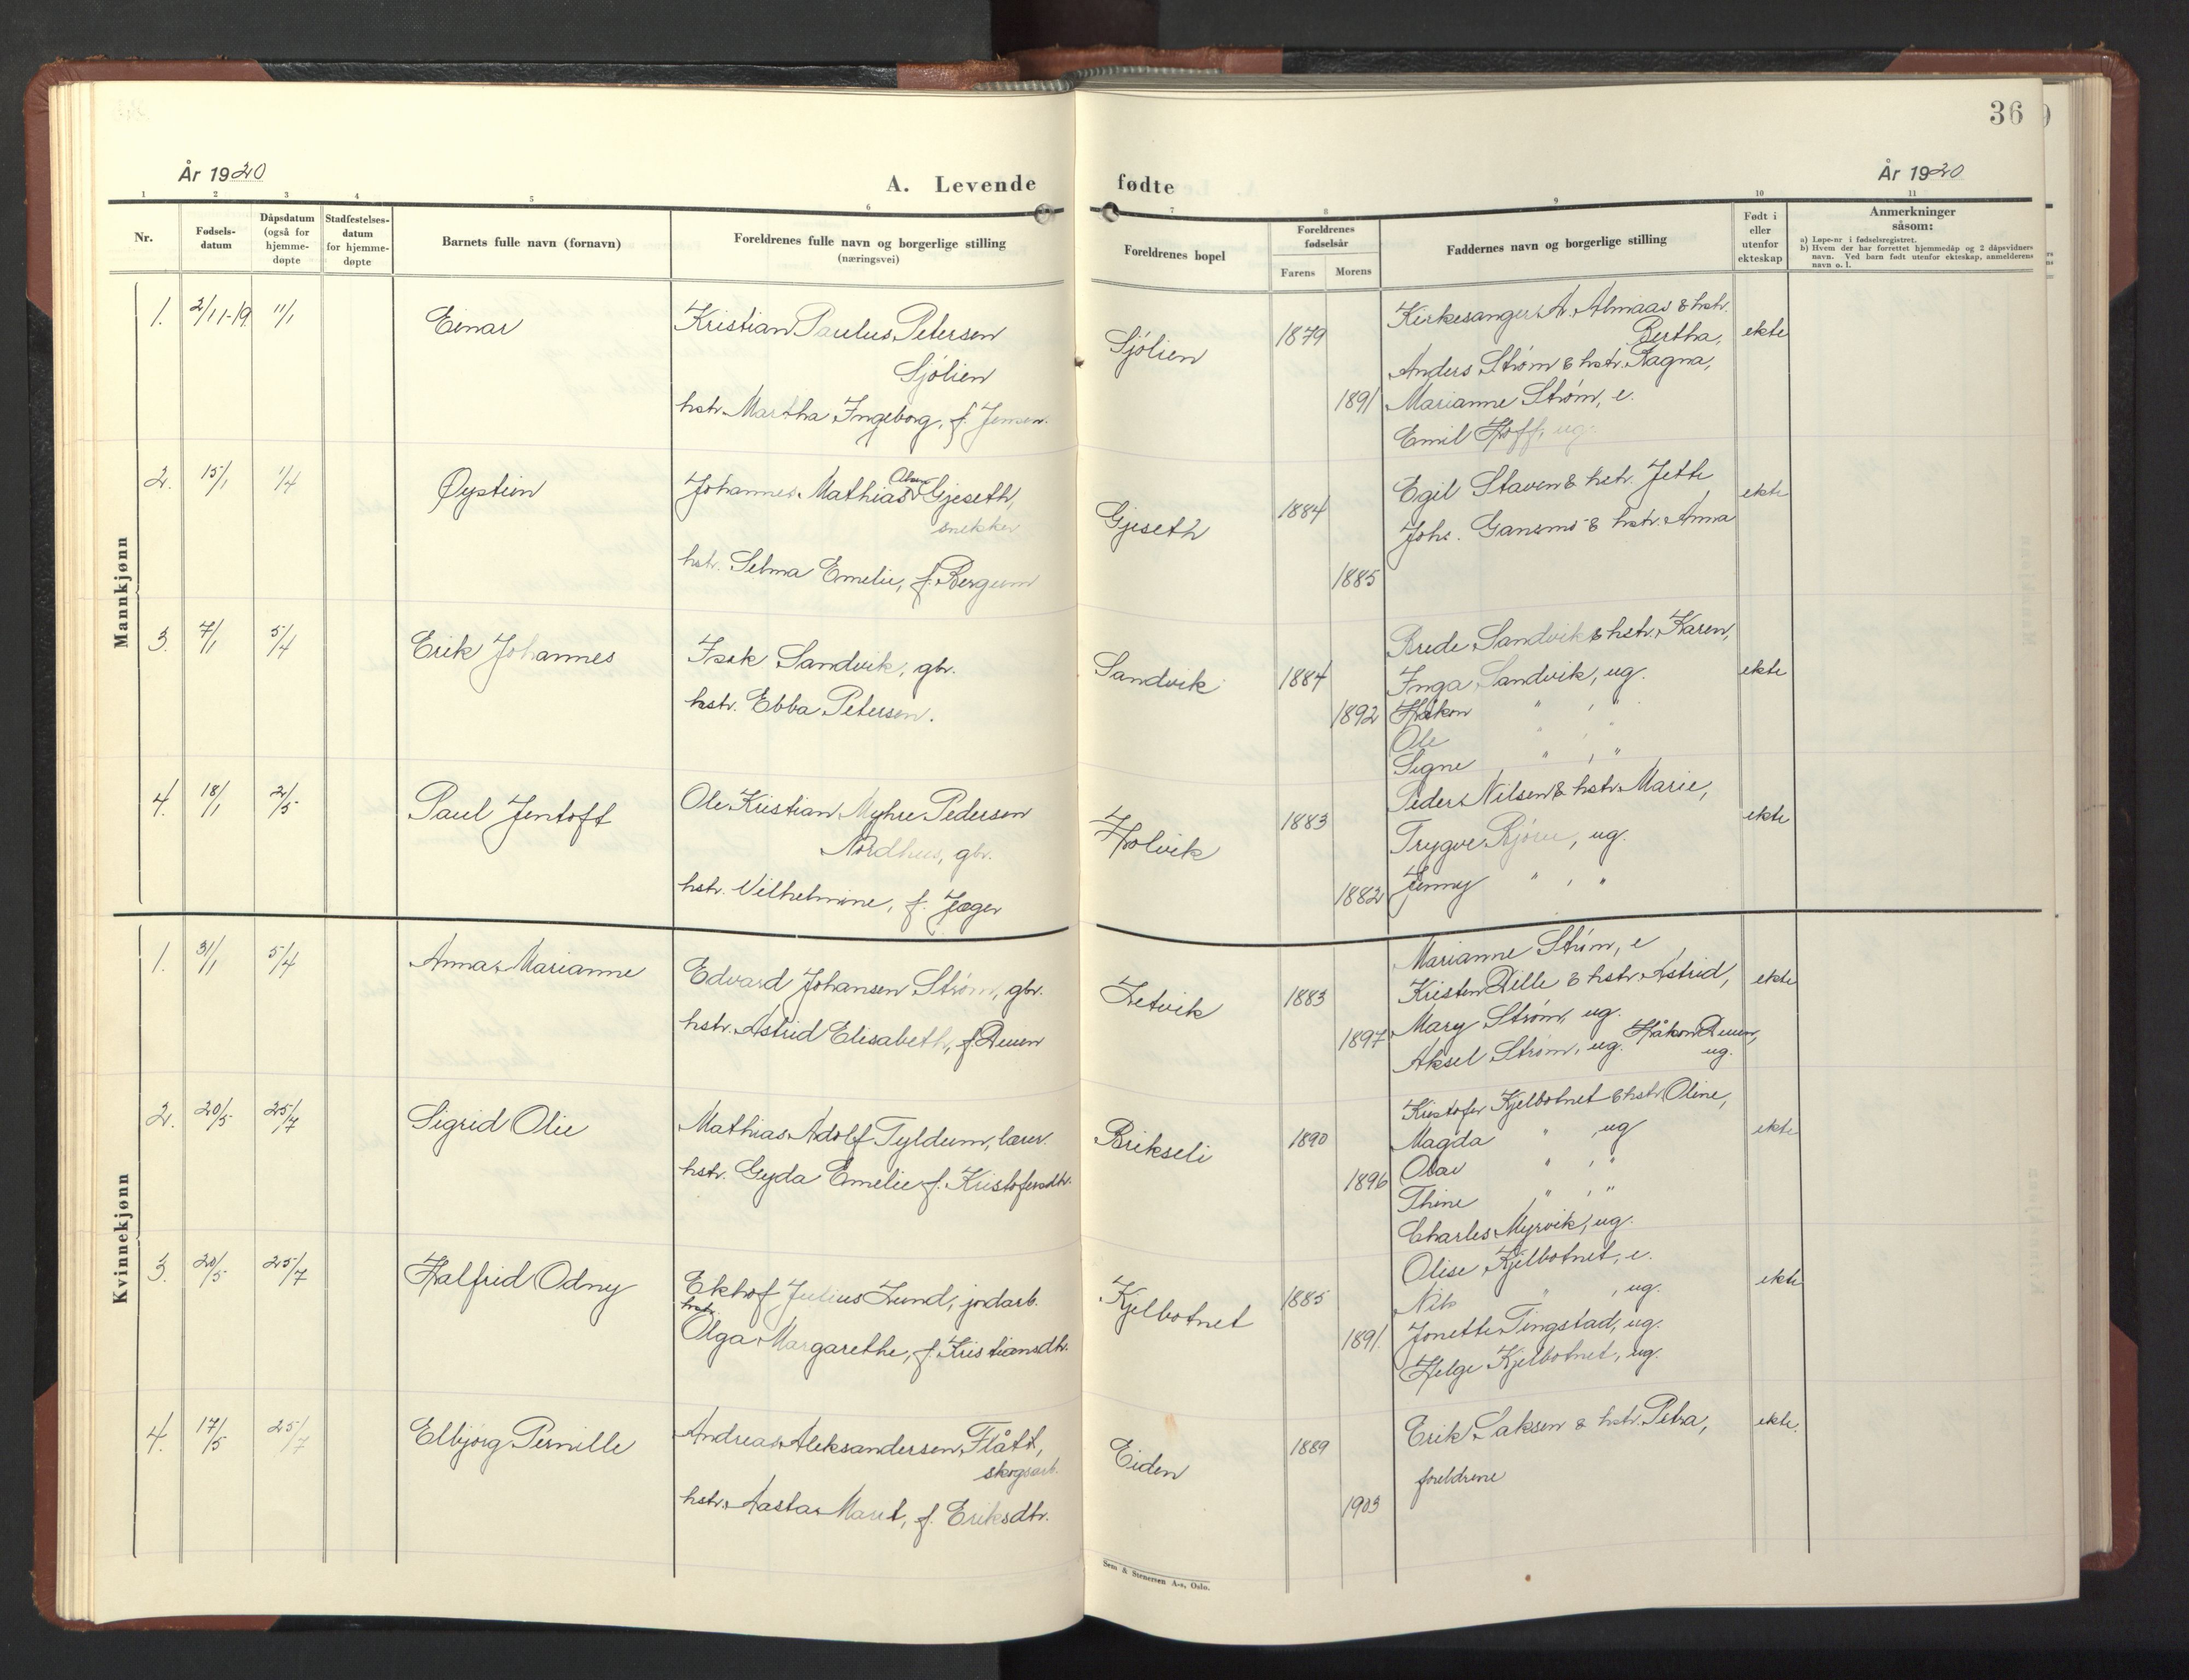 36
År 1920
A. Levende
født e
År 1920
1 2 3 4 5 6 7 8 9 10 11
Nr.
Fødsels-
datum
Dåpsdatum
(også for
hjemme-
døpte
Stadfestelses-
datum
for hjemme-
døpte
Barnets fulle navn (fornavn)
Foreldrenes fulle navn og borgerlige stilling
(næringsvei)
Foreldrenes bopel
Foreldrenes
fødselsår
Farens
Morens
Faddernes navn og borgerlige stilling
Født i
eller
utenfor
ekteskap
Anmerkninger
såsom:
a) Løpe-nr i fødselsregistret.
b) Hvem der har forrettet hjemmedåp og 2 dåpsvidners
navn. Ved barn født utenfor ekteskap, anmelderens
navn o. l.
Mannkjønn
1. 2/11-19 11/1 Einar
Kristian Paulus Petersen
Sjölien
hstr. Martha Ingeborg, f. Jensen.
Sjölien 1879
1891
Kirkesanger A. Almaas & hstr.
Bertha,
Anders Strøm & hstr. Ragna,
Marianne Strøm, e.
Emil Hoff, ug.
ekte
2. 15/1 1/4 Øystein
Johannes Mathias Gjeseth,
snekker
hstr. Selma Emelie, f. Bergum
Gjeseth 1884
1885
Egil Staven & hstr. Jette
Johs. Gansmo & hstr. Anna
ekte
3. 7/1 5/4 Erik Johannes
Isak Sandvik, gbr.
hstr. Ebba Petersen.
Sandvik 1884
1892
Brede Sandvik & hstr. Karen,
Inga Sandvik, ug.
Håkon " , "
Ole " , "
Signe " , "
ekte
4. 18/1 2/5 Paul Jentoft
Ole Kristian Myhre Pedersen
Nordhus, gbr.
hstr. Vilhelmine, f. Jæger
Holvik 1883
1882
Peder Nilsen & hstr. Marie,
Trygve Bjøru, ug.
Jenny " , "
ekte
Kvinnekjønn
1. 31/1 5/4 Anna Marianne
Edvard Johansen Strøm, gbr.
hstr. Astrid Elisabeth, f. Duun
Letvik 1883
1897
Marianne Strøm, e
Kristen Dille & hstr. Astrid,
Mary Strøm, ug.
Aksel Strøm, ug. Håkon Duun,
ug.
ekte
2. 20/5 25/7 Sigrid Olie
Mathias Adolf Tyldum, lærer.
hstr. Gyda Emelie f. Kristofersdtr.
Brikseli 1890
1896
Kristofer Kjelbotnet & hstr. Oline,
Magda " , ug
Olav " , "
Thine " , "
Charles Myrvik, ug.
ekte
3. 20/5 25/7 Halfrid Odny
Ekhof Julius Lund, jordarb.
hstr.
Olga Margarethe, f. Kristiansdtr.
Kjelbotnet 1885
1891.
Olise Kjelbotnet, e.
Nils " , ug.
Jonette Tingstad, ug.
Helge Kjelbotnet, ug.
ekte
4. 17/5 25/7 Elbjørg Pernille
Andreas Aleksandersen Flått,
skogsarb.
hstr. Aasta Marit, f. Eriksdtr.
Eiden 1889
1903
Erik Saksen & hstr. Petra,
foreldrene
ekte.
Sem & Stenersen A-s, Oslo.